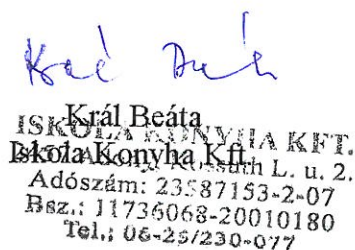 Král Beáta
Iskola Konyha Kft.
ISKOLA KONYHA KFT.
L. u. 2.
Adószám: 23587153-2-07
Bsz.: 11736068-20010180
Tel.: 06-25/230-077